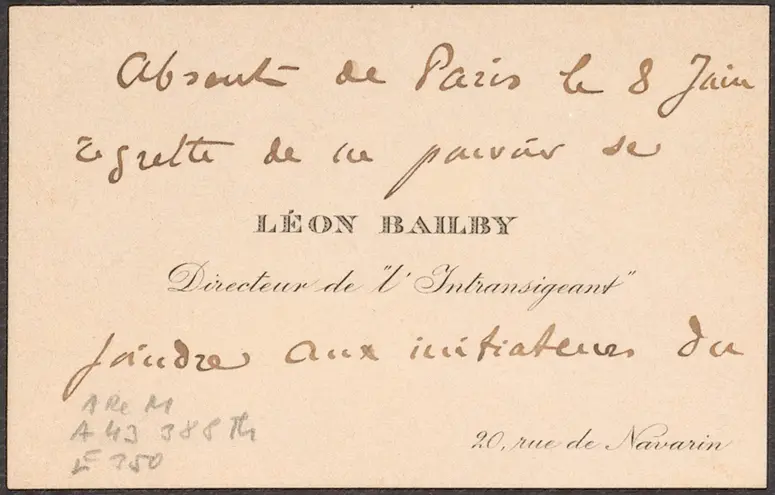 Absent de Paris le 8 Juin
regrette de ne pouvoir se
LÉON BAILBY
Directeur de "l'Intransigeant"
joindre aux initiateurs du
A Re M
A 43 388 Th
E 350
20, rue de Navarin